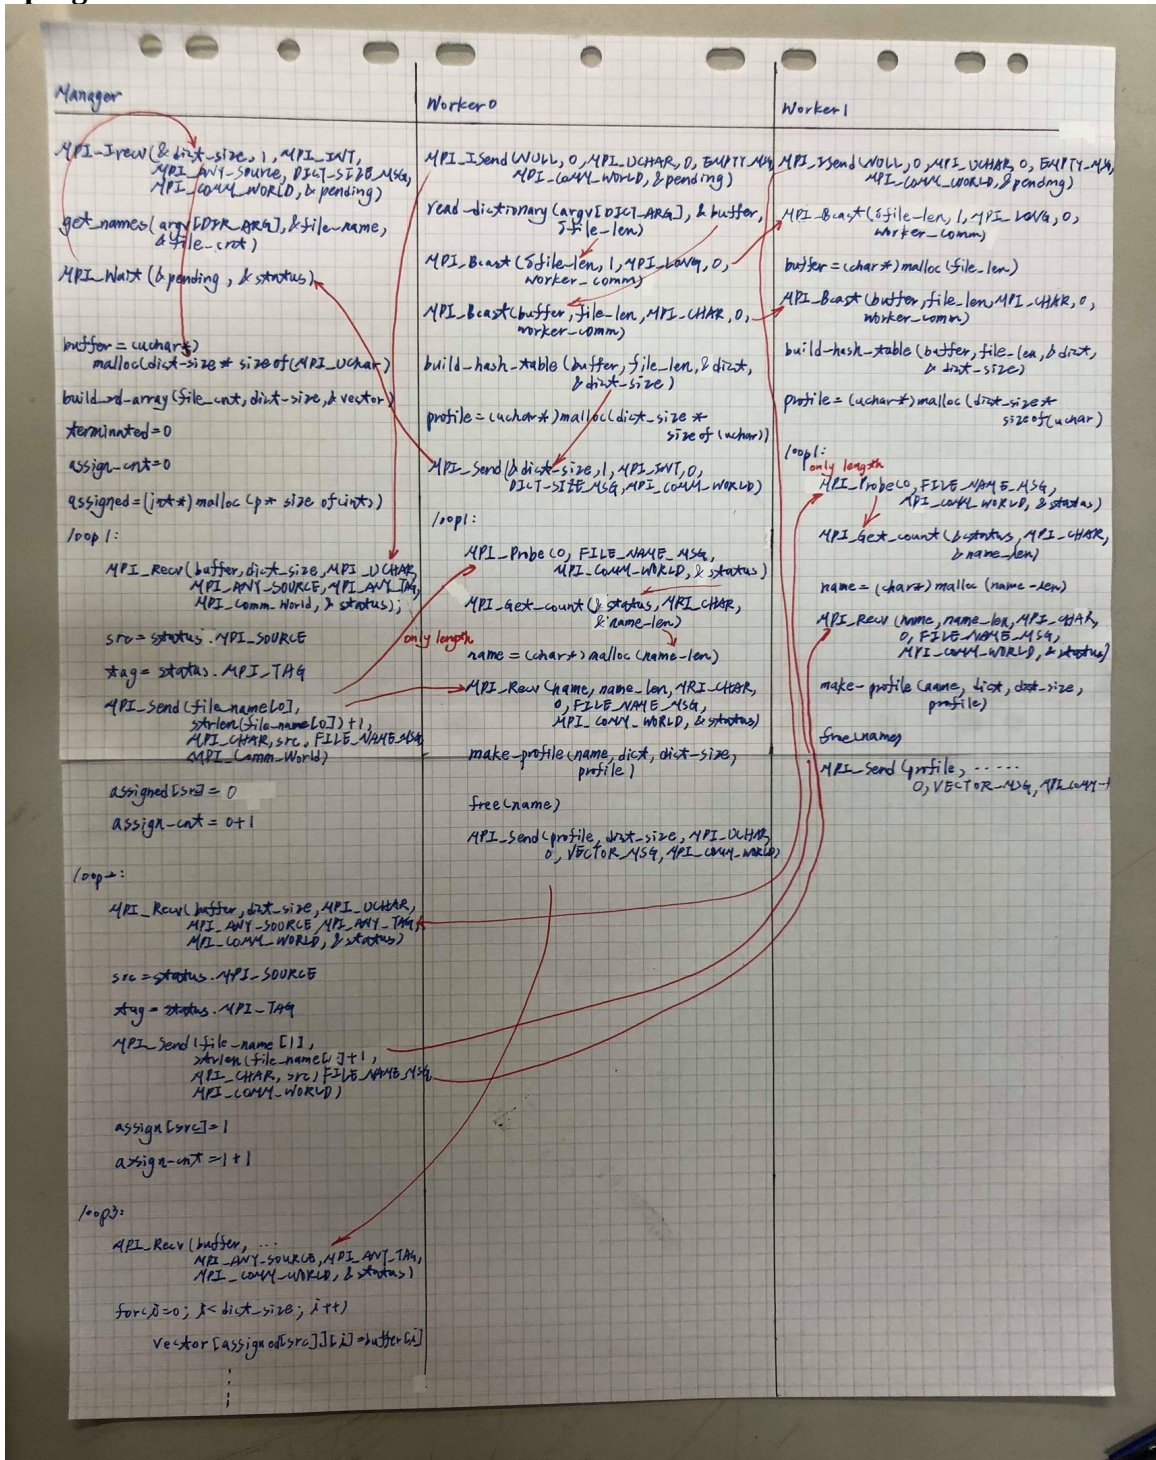 Manager
MPI_Irecv(&dict_size, 1, MPI_INT,
MPI_ANY_Source, DICT_SIZE_MSG,
MPI_COMM_WORLD, &pending)
get_names(argv[DIR_ARG], &file_name,
&file_cnt)
MPI_Wait(&pending, &status)
buffer = (uchar*)
malloc(dict_size * sizeof(MPI_Uchar)
build_2d_array(file_cnt, dict_size, &vector)
terminated=0
assign_cnt=0
assigned=(int*) malloc (p* sizeof(int))
loop1:
MPI_Recv(buffer, dict_size, MPI_UCHAR,
MPI_ANY_SOURCE, MPI_ANY_TAG,
MPI_Comm_World, & status);
src=status.MPI_SOURCE
tag=status.MPI_TAG
MPI_Send(file_name[0],
strlen(file_name[0])+1,
MPI_CHAR, src, FILE_NAME_MSG
MPI_Comm_World)
assigned[src]=0
assign_cnt = 0+1
loop2:
MPI_Recv(buffer, dict_size, MPI_UCHAR,
MPI_ANY_SOURCE, MPI_ANY_TAG,
MPI_COMM_WORLD, &status)
src=status.MPI_SOURCE
tag=status.MPI_TAG
MPI_Send(file_name[1],
strlen(file_name[1]+1,
MPI_CHAR, src, FILE_NAME_MSG,
MPI_COMM_WORLD)
assign[src]=1
assign_cnt=1+1
loop3:
MPI_Recv(buffer, ...
MPI_ANY_SOURCE, MPI_ANY_TAG,
MPI_COMM_WORLD, &status)
for(i=0; i<dict_size; i++)
vector[assigned[src]][i]=buffer[i]
Worker0
MPI_Isend(NULL, 0, MPI_UCHAR, 0, EMPTY_MSG,
MPI_COMM_WORLD, &pending)
read_dictionary(argv[DICT_ARG], &buffer,
&file_len)
MPI_Bcast(&file_len, 1, MPI_LONG, 0,
worker_comm)
MPI_Bcast(buffer, file_len, MPI_CHAR, 0,
worker_comm)
build_hash_table(buffer, file_len, &dict,
&dict_size)
profile=(uchar*)malloc(dict_size *
sizeof(uchar))
MPI_Send(&dict_size, 1, MPI_INT, 0,
DICT_SIZE_MSG, MPI_COMM_WORLD)
loop1:
MPI_Probe(0, FILE_NAME_MSG,
MPI_COMM_WORLD, &status)
MPI_Get_count(&status, MPI_CHAR,
&name_len)
only length
name=(char*)malloc(name_len)
MPI_Recv(name, name_len, MPI_CHAR,
0, FILE_NAME_MSG,
MPI_COMM_WORLD, &status)
make_profile(name, dict, dict_size,
profile)
free(name)
MPI_Send(profile, dict_size, MPI_UCHAR,
0, VECTOR_MSG, MPI_COMM_WORLD)
Worker1
MPI_Isend(NULL, 0, MPI_UCHAR, 0, EMPTY_MSG,
MPI_COMM_WORLD, &pending)
MPI_Bcast(&file_len, 1, MPI_LONG, 0,
worker_comm)
buffer=(char*)malloc(file_len)
MPI_Bcast(buffer, file_len, MPI_CHAR, 0,
worker_comm)
build_hash_table(buffer, file_len, &dict,
&dict_size)
profile=(uchar*)malloc(dict_size*
sizeof(uchar)
loop1:
only length
MPI_Probe(0, FILE_NAME_MSG,
MPI_COMM_WORLD, &status)
MPI_Get_count(&status, MPI_CHAR,
&name_len)
name=(char*)malloc(name_len)
MPI_Recv(name, name_len, MPI_CHAR,
0, FILE_NAME_MSG,
MPI_COMM_WORLD, &status)
make_profile(name, dict, dict_size,
profile)
free(name)
MPI_Send(profile, ......
0, VECTOR_MSG, MPI_COMM